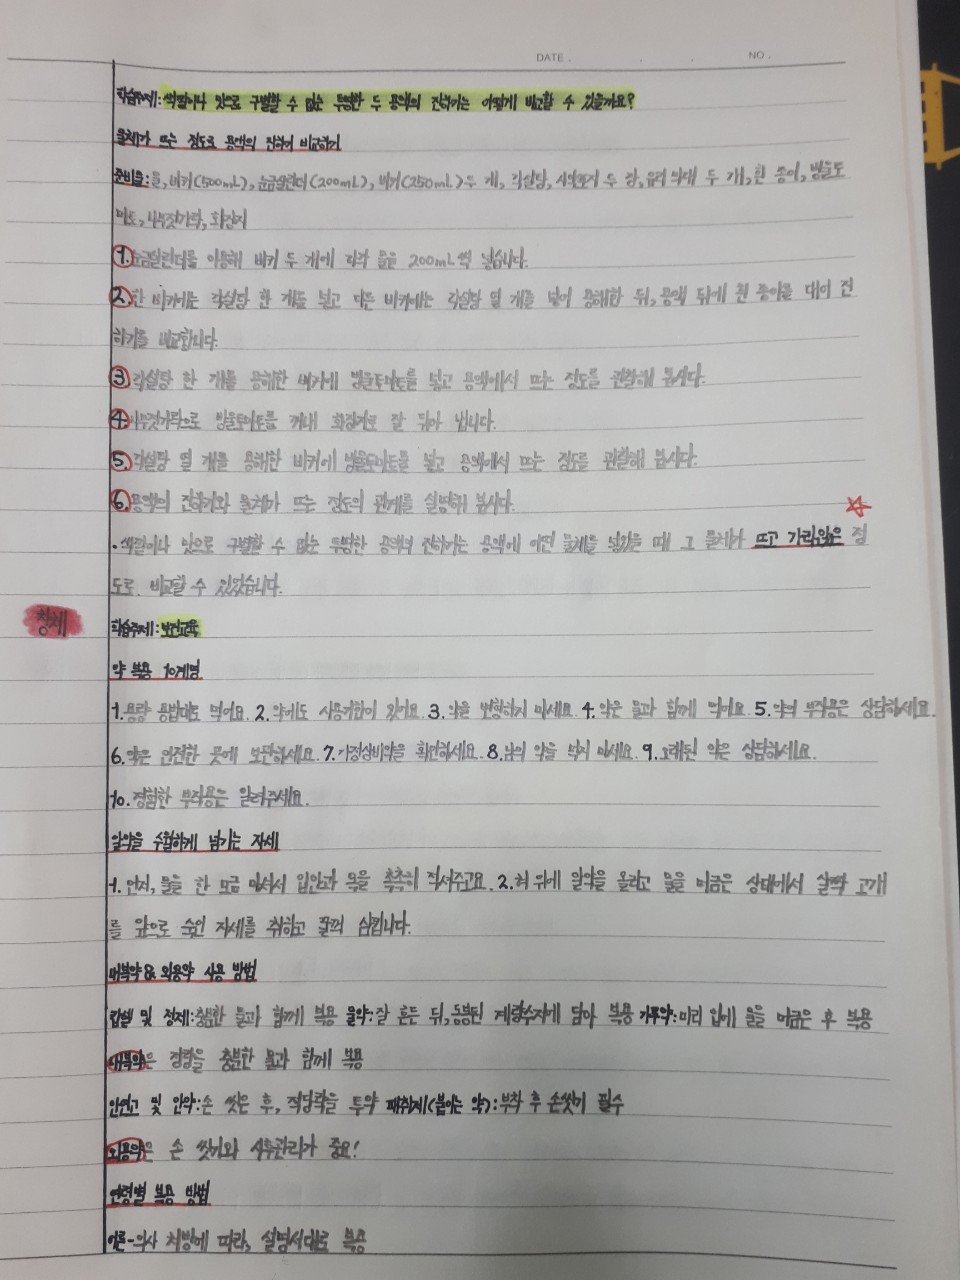 DATE . . . NO .
학습주제: 색깔이나 맛으로 구별할 수 없는 투명한 두 용액의 진하기는 어떻게 비교할 수 있을까요?
물체가 뜨는 정도로 용액의 진하기 비교하기
준비물: 물, 비커(500mL), 눈금실린더(200mL), 비커(250mL) 두 개, 각설탕, 시약포지 두 장, 유리 막대 두 개, 흰 종이, 방울토
마토, 나무젓가락, 화장지
1. 눈금실린더를 이용해 비커 두 개에 각각 물을 200mL씩 넣습니다.
2. 한 비커에는 각설탕 한 개를 넣고 다른 비커에는 각설탕 열 개를 넣어 용해한 뒤, 용액 뒤에 흰 종이를 대어 진
하기를 비교합니다.
3. 각설탕 한 개를 용해한 비커에 방울토마토를 넣고 용액에서 뜨는 정도를 관찰해 봅시다.
4. 나무젓가락으로 방울토마토를 꺼내 화장지로 잘 닦아 냅니다.
5. 각설탕 열 개를 용해한 비커에 방울토마토를 넣고 용액에서 뜨는 정도를 관찰해 봅시다.
6. 용액의 진하기와 물체가 뜨는 정도의 관계를 설명해 봅시다.
• 색깔이나 맛으로 구별할 수 없는 투명한 용액의 진하기는 용액에 어떤 물체를 넣었을 때 그 물체가 뜨고 가라앉은 정
도로 비교할 수 있었습니다.
창체 학습주제: 보건교육
약 복용 10계명
1. 용량 용법대로 먹어요. 2. 약에도 사용기한이 있어요. 3. 약을 변형하지 마세요. 4. 약은 물과 함께 먹어요. 5. 약의 부작용은 상담하세요.
6. 약은 안전한 곳에 보관하세요. 7. 가정상비약을 확인하세요. 8. 남의 약을 먹지 마세요. 9. 오래된 약은 상담하세요.
10. 경험한 부작용은 알려주세요.
알약을 수월하게 넘기는 자세
1. 먼저, 물을 한 모금 마셔서 입안과 목을 촉촉히 적셔주고요. 2. 혀 위에 알약을 올리고 물을 머금은 상태에서 살짝 고개
를 앞으로 숙인 자세를 취하고 꿀꺽 삼킵니다.
내복약 & 외용약 사용 방법
캅셀 및 정제: 충분한 물과 함께 복용 물약: 잘 흔든 뒤, 동봉된 계량수저에 담아 복용 가루약: 미리 입에 물을 머금은 후 복용
내복약은 정량을 충분한 물과 함께 복용
안연고 및 안약: 손 씻은 후, 적당량을 투약 패취제(붙이는 약): 부착 후 손씻기 필수
외용약은 손 씻기와 사후관리가 중요!
연령별 복용 방법
어른 - 의사 처방에 따라, 설명서대로 복용